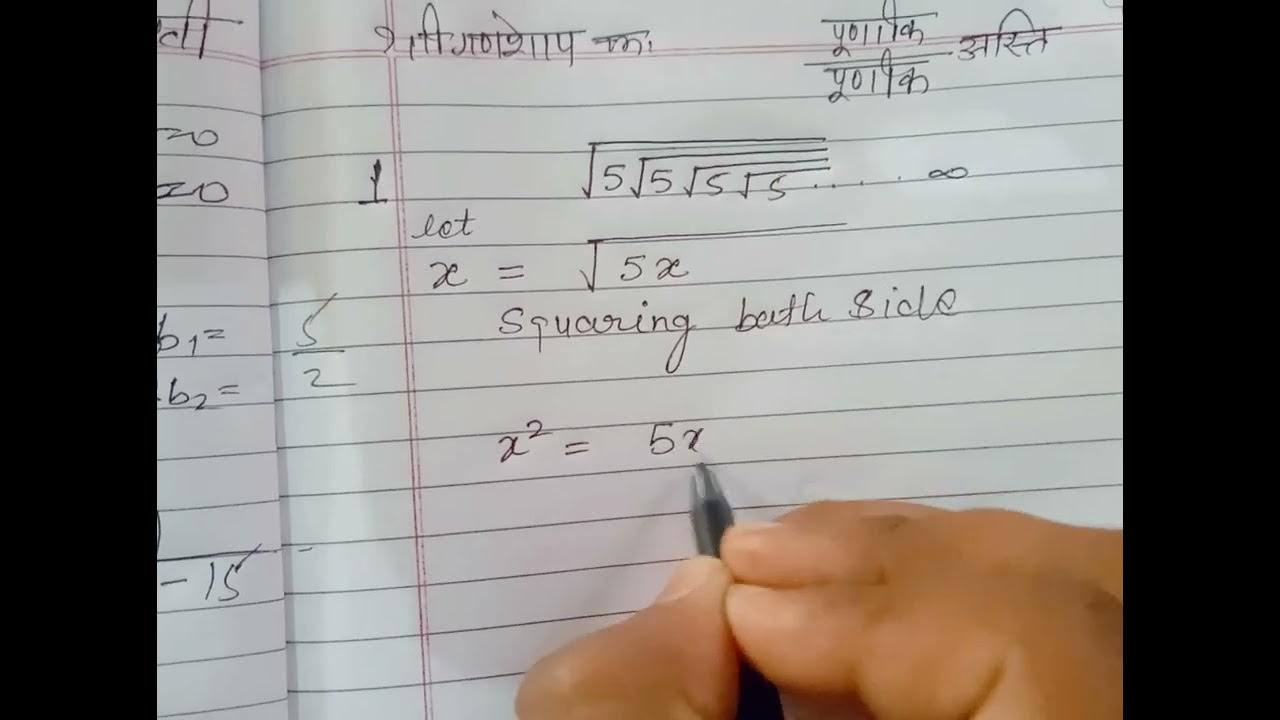 ती
=0
=0
b₁= 5/2
b₂=
-15
श्री गणेशाय नमः
पूर्णांक
पूर्णांक अस्ति
1 √5√5√5√5..... ∞
let
x = √5x
Squaring bath Side
x² = 5x